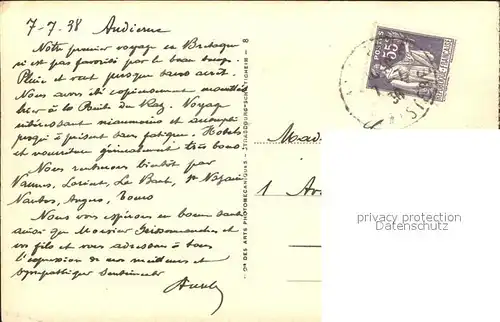 7-7-38 Audierne
Notre premier voyage en Bretagne
n'est pas favorisé par le beau temps.
Pluie et vent presque sans arrêt.
Nous avons été copieusement mouillés
hier à la Pointe du Raz. Voyage
intéressant néanmoins et accompli
jusqu'à présent sans fatigue. Hotels
et nourriture généralement très bons.
Nous rentrerons bientôt par
Vannes, Lorient, Le St Nazaire
Nantes, Angers, Tours
Nous vous espérons en bonne santé
ainsi que Monsieur et
vos fils et vous adressons à tous
l'expression de nos meilleurs et
sympathiques sentiments
Cie DES ARTS PHOTOMECANIQUES - STRASBOURG-SCHILTIGHEIM - 8
POSTES
55c
Mad
1
privacy protection
Watermark